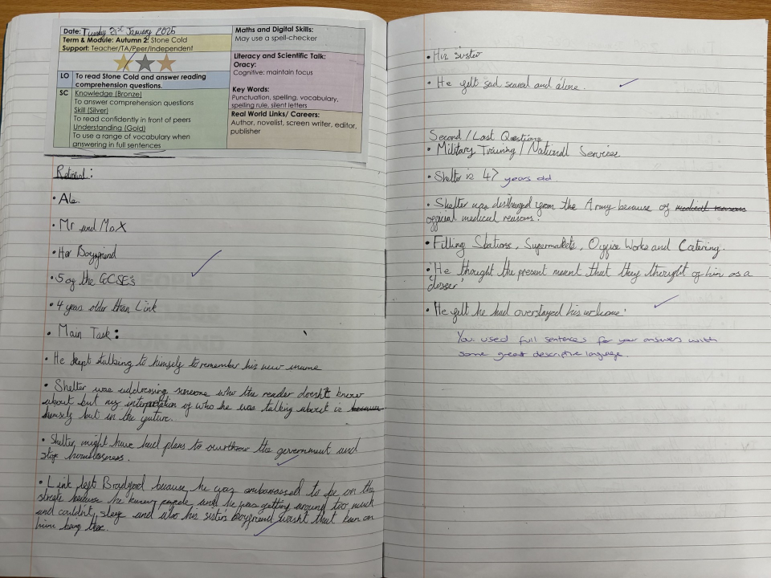 Date: Tuesday 21st January 2025
Term & Module: Autumn 2: Stone Cold
Support: Teacher/TA/Peer/Independent
LO To read Stone Cold and answer reading
comprehension questions
SC Knowledge (Bronze)
To answer comprehension questions
Skill (Silver)
To read confidently in front of peers
Understanding (Gold)
To use a range of vocabulary when
answering in full sentences
Maths and Digital Skills:
May use a spell-checker
Literacy and Scientific Talk:
Oracy:
Cognitive: maintain focus
Key Words:
Punctuation, spelling, vocabulary,
spelling rule, silent letters
Real World Links/ Careers:
Author, novelist, screen writer, editor,
publisher
• Mr and Max
• Her Boyfriend
• 5 of the GCSE's
• 4 years older than Link
• Main Task:
• He kept talking to himself to remember his new name
• Shelter was addressing someone who the reader doesn't know
about but my interpretation of who he was talking about is because
himself but in the future.
• Shelter, might have had plans to overthrow the government and
stop homelessness.
• Link left Bradford because he was embarrassed to be on the
streets because he knew people and he was getting around too much
and couldn't sleep and also his sisters boyfriend wasn't that keen on
him being there.
• His sister
• He felt sad scared and alone.
Second/Last Questions
• Military Training / National Services
• Shelter is 47 years old
• Shelter was discharged from the Army because of medical reasons
official medical reasons.
• Filling Stations, Supermarkets, Office Works and Catering.
• He thought the present meant that they thought of him as a
'loser'
• He felt he had overstayed his welcome.
You used full sentences for your answers with
some great descriptive language.